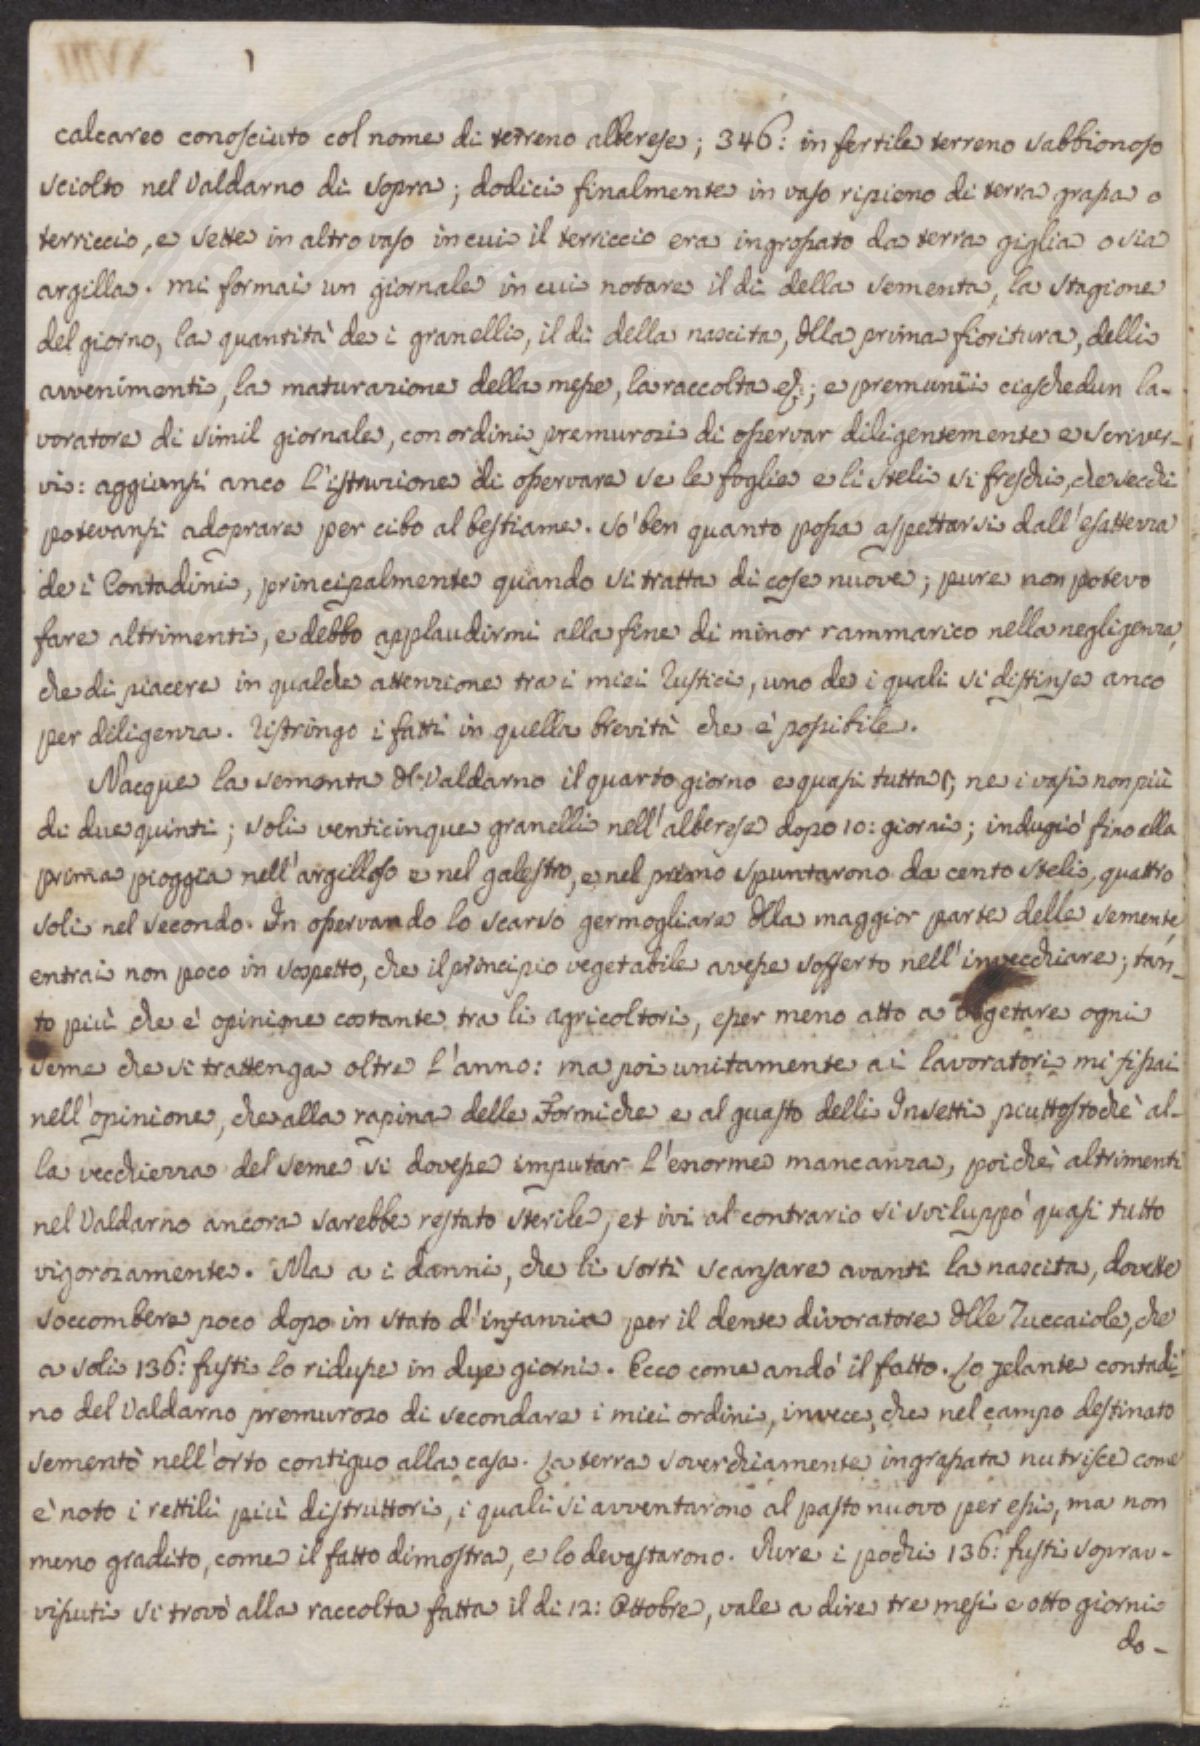 calcareo conosciuto col nome di terreno alberese; 346: in fertile terreno sabbionoso
sciolto nel Valdarno di sopra; dodici finalmente in vaso ripieno di terra grassa o
terriccio, e sette in altro vaso in cui il terriccio era ingrossato da terra giglia o sia
argilla. mi formai un giornale in cui notare il dì della sementa, la stagione
del giorno, la quantità de i granelli, il dì della nascita, della prima fioritura, delli
avvenimenti, la maturazione della messe, la raccolta &; e premunii ciaschedun la-
voratore di simil giornale, con ordini premurosi di osservar diligentemente e scriver-
vi: aggiunsi anco l'istruzione di osservare se le foglie e li steli sì freschi, che secchi
potevansi adoprare per cibo al bestiame. so ben quanto possa aspettarsi dall'esattezza
de i Contadini, principalmente quando si tratta di cose nuove; pure non potevo
fare altrimenti, e debbo applaudirmi alla fine di minor rammarico nella negligenza,
che di piacere in qualche attenzione tra i miei Rustici, uno de i quali si distinse anco
per diligenza. Ristringo i fatti in quella brevità che è possibile.
Nacque la sementa del Valdarno il quarto giorno e quasi tutta; ne i vasi non più
di due quinti; soli venticinque granelli nell'alberese dopo 10: giorni; indugiò fino alla
prima pioggia nell'argilloso e nel galestro, e nel primo spuntarono da cento steli, quattro
soli nel secondo. In osservando lo scarso germogliare della maggior parte delle semente,
entrai non poco in sospetto, che il principio vegetabile avesse sofferto nell'invecchiare; tan-
to più che è opinione costante tra li agricoltori, esser meno atto a vegetare ogni
seme che si trattenga oltre l'anno: ma poi unitamente ai lavoratori mi fissai
nell'opinione, che alla rapina delle Formiche e al guasto delli Insetti piuttostochè al-
la vecchiezza del seme si dovesse imputar l'enorme mancanza, poichè altrimenti
nel Valdarno ancora sarebbe restato sterile, et ivi al contrario si sviluppò quasi tutto
vigorosamente. Ma a i danni, che li sortì scansare avanti la nascita, dovette
soccombere poco dopo in stato d'infanzia per il dente divoratore delle Zuccaiole, che
a soli 136: fusti lo ridusse in due giorni. Ecco come andò il fatto. Lo zelante contadi-
no del Valdarno premuroso di secondare i miei ordini, invece, che nel campo destinato
sementò nell'orto contiguo alla casa. La terra soverchiamente ingrassata nutrisce come
è noto i rettili più distruttori, i quali si avventarono al pasto nuovo per essi, ma non
meno gradito, come il fatto dimostra, e lo devastarono. Pure i pochi 136: fusti soprav-
vissuti si trovò alla raccolta fatta il dì 12: Ottobre, vale a dire tre mesi e otto giorni
do-